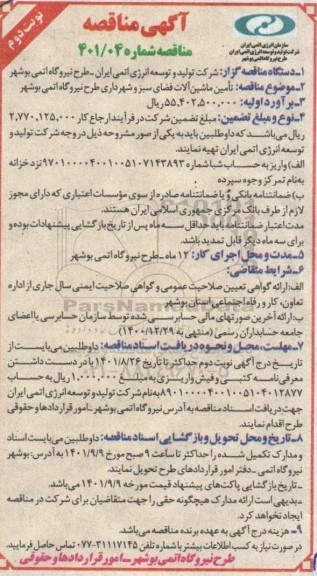 نوبت دوم
آگهی مناقصه
مناقصه شماره ۴۰۱/۰۴
سازمان انرژی اتمی ایران
شرکت تولید و توسعه انرژی اتمی ایران
طرح نیروگاه اتمی بوشهر
۱-دستگاه مناقصه گزار: شرکت تولید و توسعه انرژی اتمی ایران -طرح نیروگاه اتمی بوشهر
۲-موضوع مناقصه: تأمین ماشین آلات فضای سبز و شهرداری طرح نیروگاه اتمی بوشهر
۳-برآورد اولیه: ۵۵,۴۰۲,۵۰۰,۰۰۰ ریال
۴-نوع و مبلغ تضمین: مبلغ تضمین شرکت در فرآیند ارجاع کار ۲,۷۷۰,۱۲۵,۰۰۰
ریال می‌باشد که داوطلبین باید به یکی از صور مشروحه ذیل در وجه شرکت تولید و
توسعه انرژی اتمی ایران تهیه نمایند.
الف) واریز به حساب شبا شماره نزد خزانه
به نام تمرکز وجوه سپرده
ب) ضمانتنامه بانکی و یا ضمانتنامه صادره از سوی مؤسسات اعتباری که دارای مجوز
لازم از طرف بانک مرکزی جمهوری اسلامی ایران هستند.
مدت اعتبار ضمانتنامه باید حداقل سه ماه پس از تاریخ بازگشایی پیشنهادات بوده و
برای سه ماه دیگر قابل تمدید باشد.
۵-مدت و محل اجرای کار: ۱۲ ماه -طرح نیروگاه اتمی بوشهر
۶-شرایط متقاضی:
الف: ارائه گواهی تعیین صلاحیت عمومی و گواهی صلاحیت ایمنی سال جاری از اداره
تعاون، کار و رفاه اجتماعی استان بوشهر
ب: ارائه آخرین صورتهای مالی حسابرسی شده توسط سازمان حسابرسی یا اعضای
جامعه حسابداران رسمی (منتهی به ۱۴۰۰/۱۲/۲۹)
۷-مهلت، محل و نحوه دریافت اسناد مناقصه: داوطلبین می‌بایست از
تاریخ درج آگهی نوبت دوم حداکثر تا تاریخ ۱۴۰۱/۸/۲۶ با در دست داشتن
معرفی نامه کتبی و فیش واریزی به مبلغ ۱,۰۰۰,۰۰۰ ریال به حساب
به نام شرکت تولید و توسعه انرژی اتمی ایران
جهت دریافت اسناد مناقصه به آدرس نیروگاه اتمی بوشهر -امور قراردادها و حقوقی
طرح اقدام نمایند.
۸-تاریخ و محل تحویل و بازگشایی اسناد مناقصه: داوطلبین می‌بایست اسناد
و مدارک تکمیل شده را حداکثر تا ساعت ۹ صبح مورخ ۱۴۰۱/۹/۹ به آدرس: بوشهر
نیروگاه اتمی -دفتر امور قراردادهای طرح تحویل نمایند.
-تاریخ بازگشایی پاکت‌های پیشنهاد قیمت مورخه ۱۴۰۱/۹/۹ می‌باشد.
-بدیهی است ارائه مدارک هیچگونه حقی را جهت متقاضیان برای شرکت در مناقصه
ایجاد نخواهد کرد.
۹- هزینه درج آگهی به عهده برنده مناقصه می‌باشد.
در صورت نیاز به کسب اطلاعات بیشتر با شماره تلفن ۳۱۱۱۷۱۴۵-۰۷۷ تماس حاصل فرمایید.
طرح نیروگاه اتمی بوشهر -امور قراردادها و حقوقی